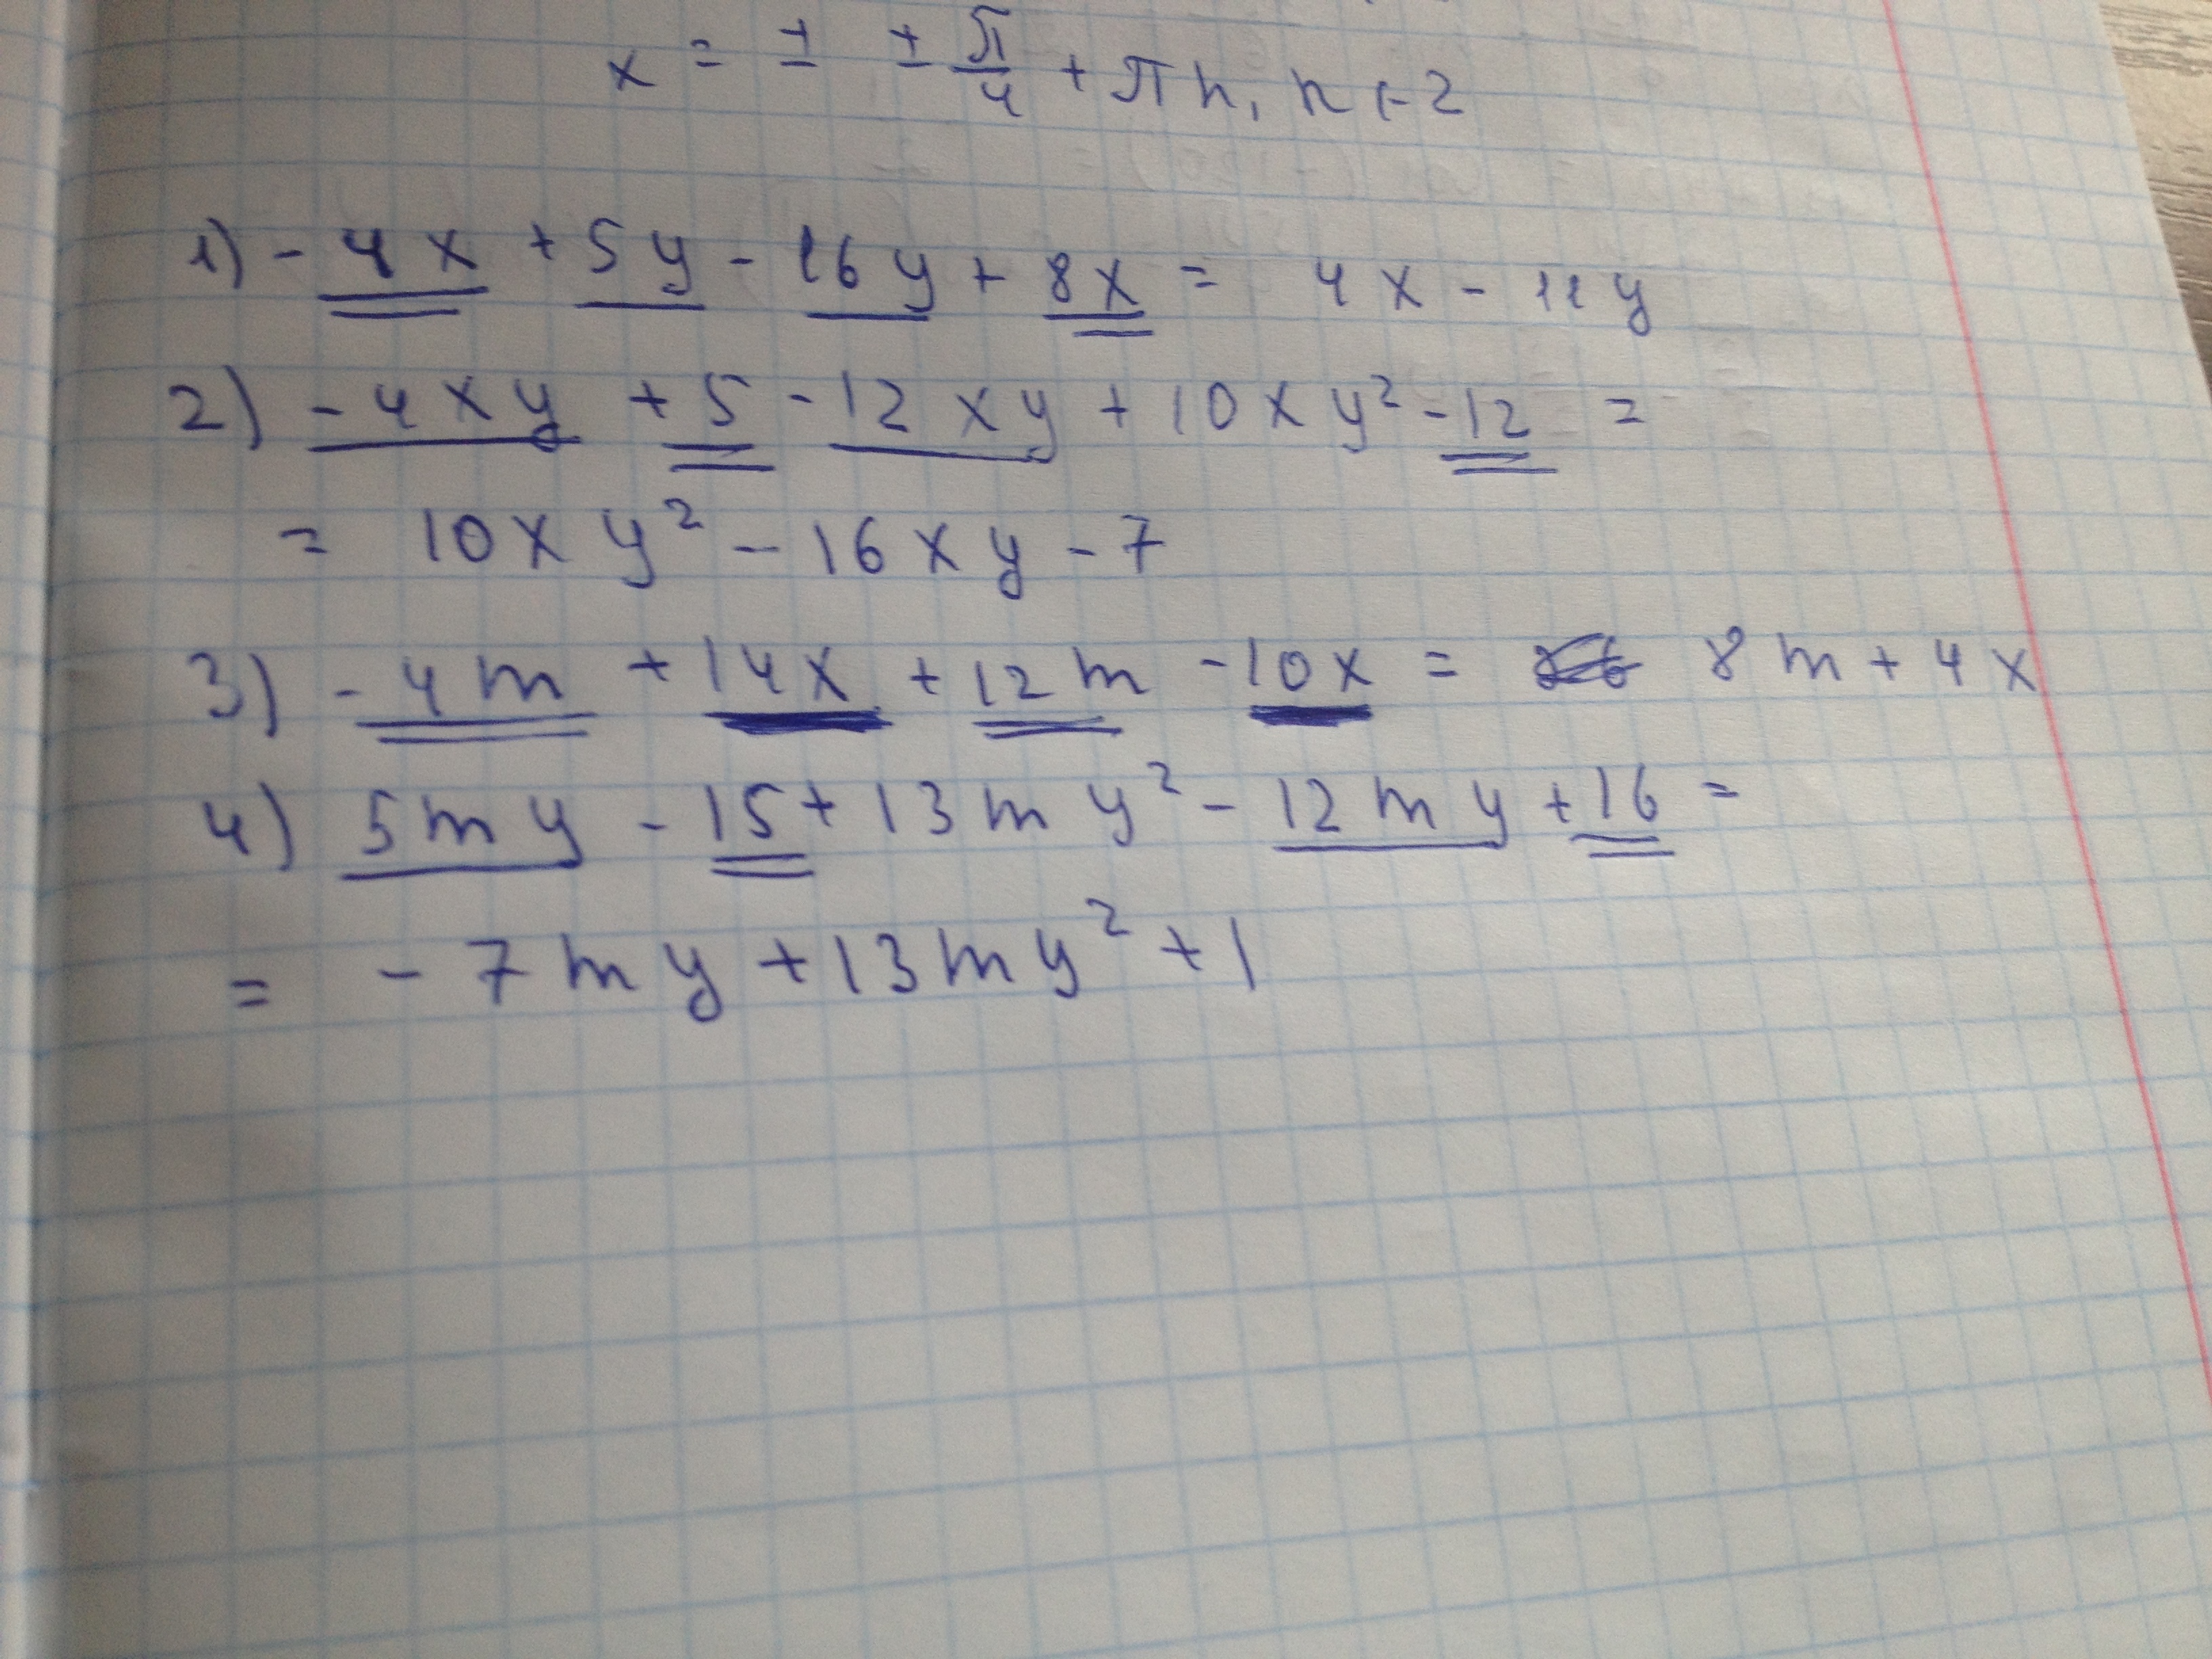 x = ± ± π/4 + πn, n ∈ Z
1) - 4x + 5y - 16y + 8x = 4x - 11y
2) - 4xy + 5 - 12xy + 10xy² - 12 =
= 10xy² - 16xy - 7
3) - 4m + 14x + 12m - 10x = 8m + 4x
4) 5my - 15 + 13my² - 12my + 16 =
= - 7my + 13my² + 1